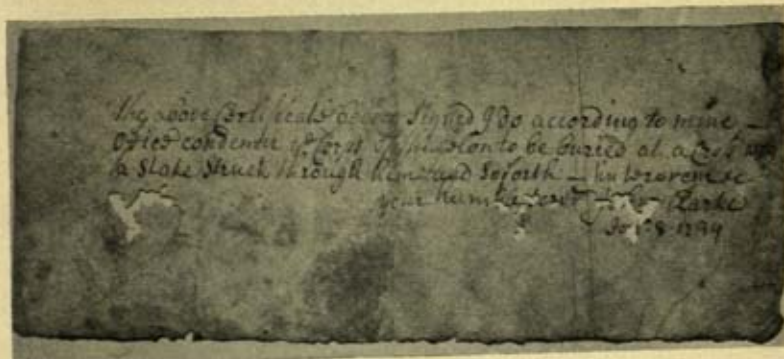 The above Certificate being Signed I do according to mine
ofice condemn ye Corps of to be buried at a Cros
a Stake Struck through him and Soforth
your humble John Clarke
8 1794